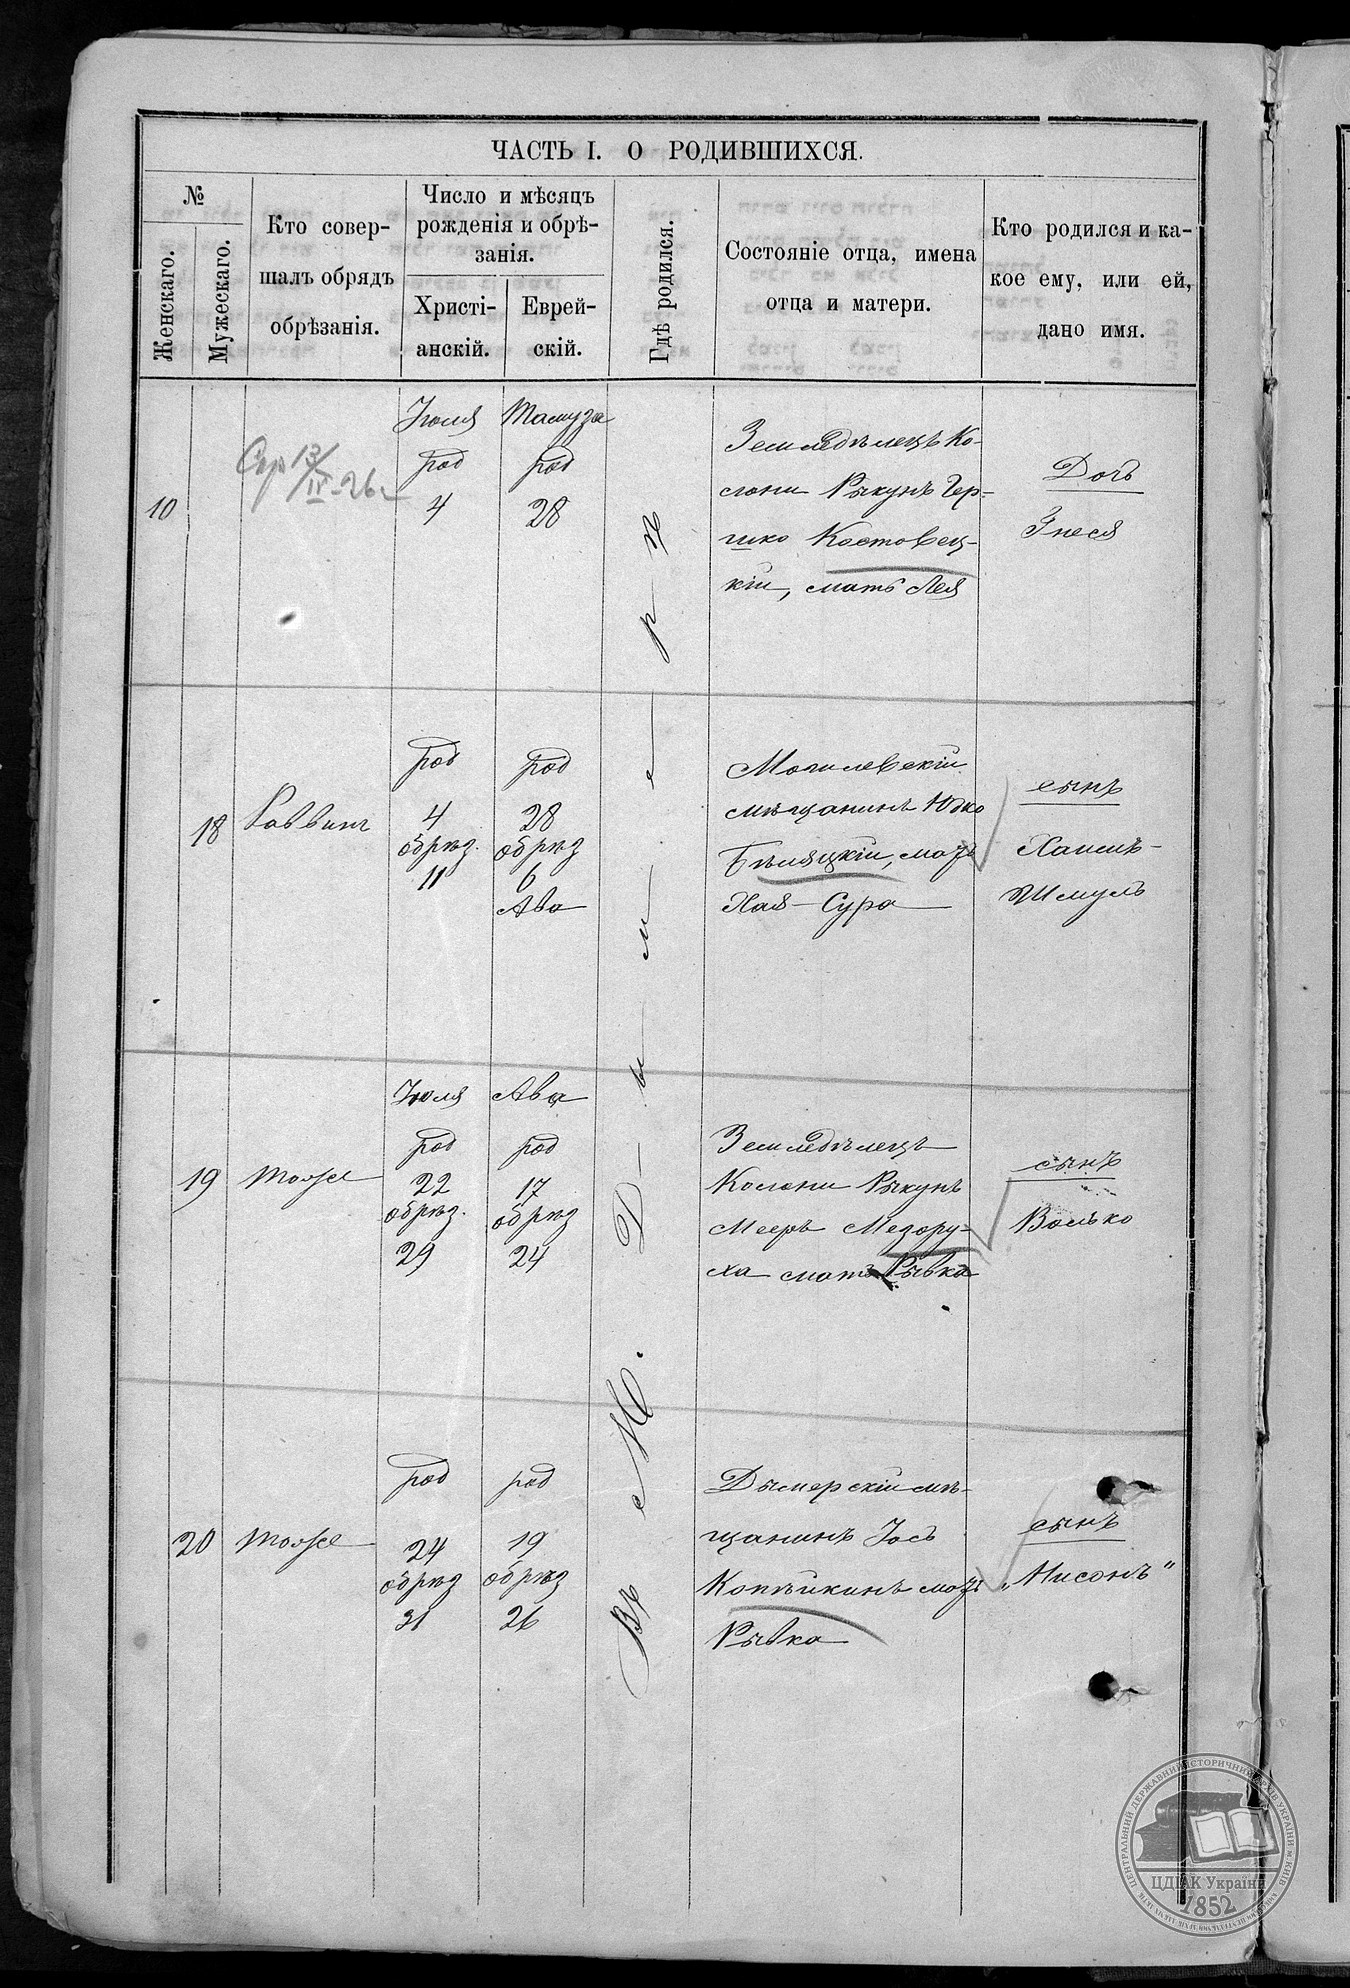 ЧАСТЬ I. О РОДИВШИХСЯ.
№
Женскаго.
Мужескаго.
Кто совер-
шалъ обрядъ
обрѣзанія.
Число и мѣсяцъ
рожденія и обрѣ-
занія.
Христі-
анскій.
Еврей-
скій.
Гдѣ родился.
Состояніе отца, имена
отца и матери.
Кто родился и ка-
кое ему, или ей,
дано имя.
Въ М. Дымерѣ
10
13/IV-26г
Іюля
род
4
Тамуза
род
28
Земледѣлецъ Ко-
лоніи Рыкунъ Гер-
шко Костовец-
кій, мать Лея
Дочь
Гнеся
18
Раввинъ
род
4
обрѣз.
11
род
28
обрѣз
6
Ава
Могилевскій
мѣщанинъ Юдко
Бѣляцкій, мать
Хая-Сура
сынъ
Хаимъ-
Шмуль
19
тотже
Іюля
род
22
обрѣз.
29
Ава
род
17
обрѣз
24
Земледѣлецъ
Колоніи Рыкунъ
Мееръ Мезору-
ха мать Рывка
сынъ
Волько
20
тотже
род
24
обрѣз
31
род
19
обрѣз
26
Дымерскій мѣ-
щанинъ Іось
Копѣйкинъ мать
Рывка
сынъ
„Нисонъ"
ЦЕНТРАЛЬНИЙ ДЕРЖАВНИЙ ІСТОРИЧНИЙ АРХІВ УКРАЇНИ М. КИЇВ
ЦДІАК України
1852